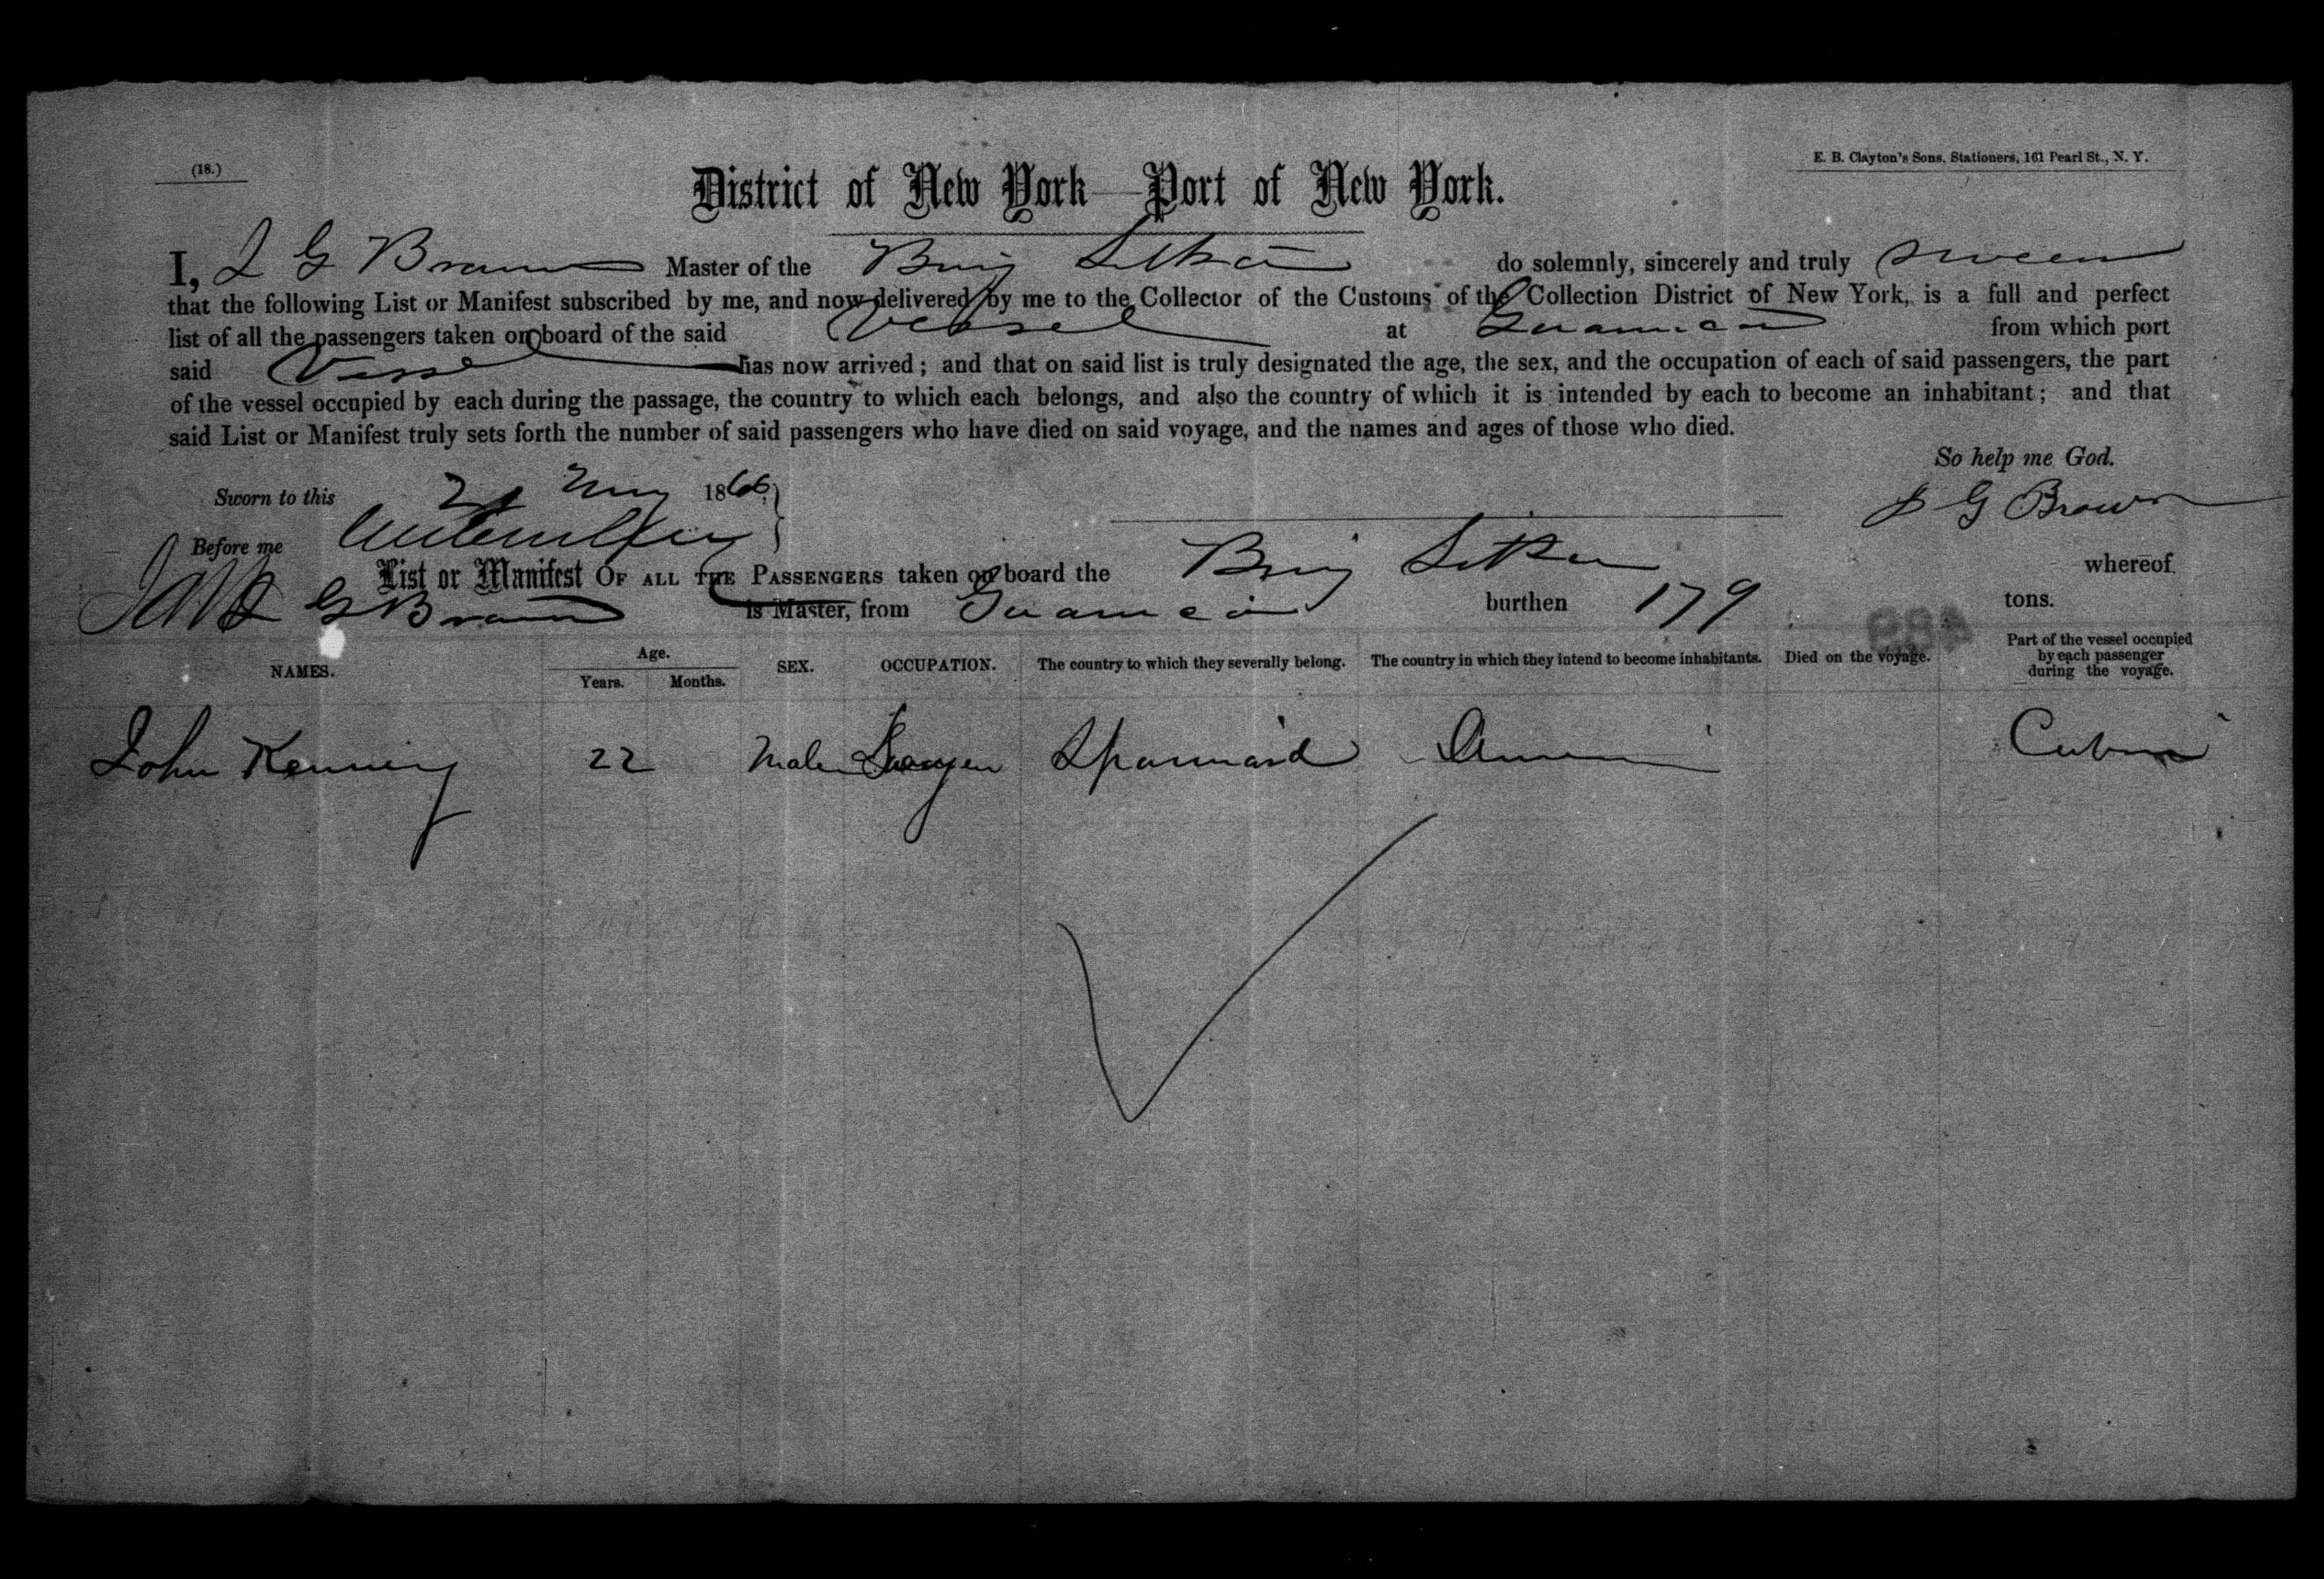 (18.)
E. B. Clayton's Sons, Stationers, 161 Pearl St., N. Y.
District of New York—Port of New York.
I, J G Brown Master of the Brig Sitka do solemnly, sincerely and truly swear
that the following List or Manifest subscribed by me, and now delivered by me to the Collector of the Customs of the Collection District of New York, is a full and perfect
list of all the passengers taken on board of the said Vessel at from which port
said Vessel has now arrived; and that on said list is truly designated the age, the sex, and the occupation of each of said passengers, the part
of the vessel occupied by each during the passage, the country to which each belongs, and also the country of which it is intended by each to become an inhabitant; and that
said List or Manifest truly sets forth the number of said passengers who have died on said voyage, and the names and ages of those who died.
So help me God.
Sworn to this May 1866
J G Brown
Before me
List or Manifest OF ALL THE PASSENGERS taken on board the Brig Sitka whereof
G Brown is Master, from burthen 179 tons.
NAMES. Age. Years. Months. SEX. OCCUPATION. The country to which they severally belong. The country in which they intend to become inhabitants. Died on the voyage. Part of the vessel occupied by each passenger during the voyage.
John Kenning 22 Male Spanniard Cabin